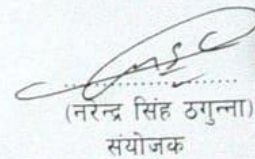 (नरेन्द्र सिंह ठगुन्ना)
संयोजक